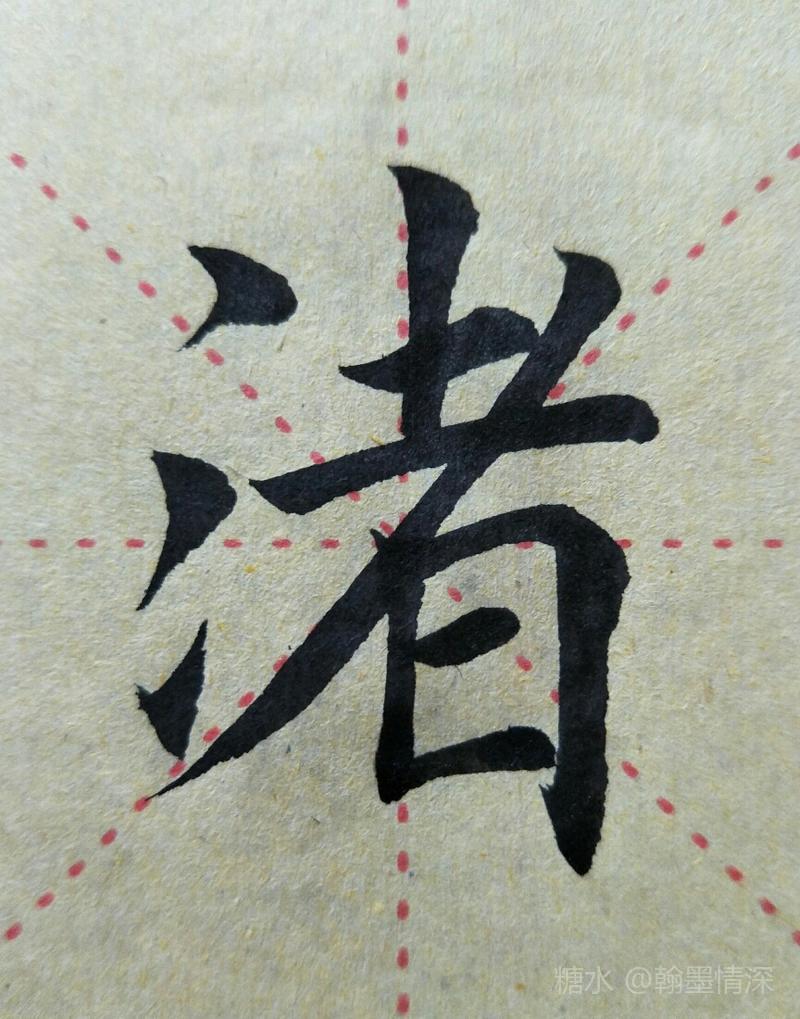 渚
糖水 @翰墨情深